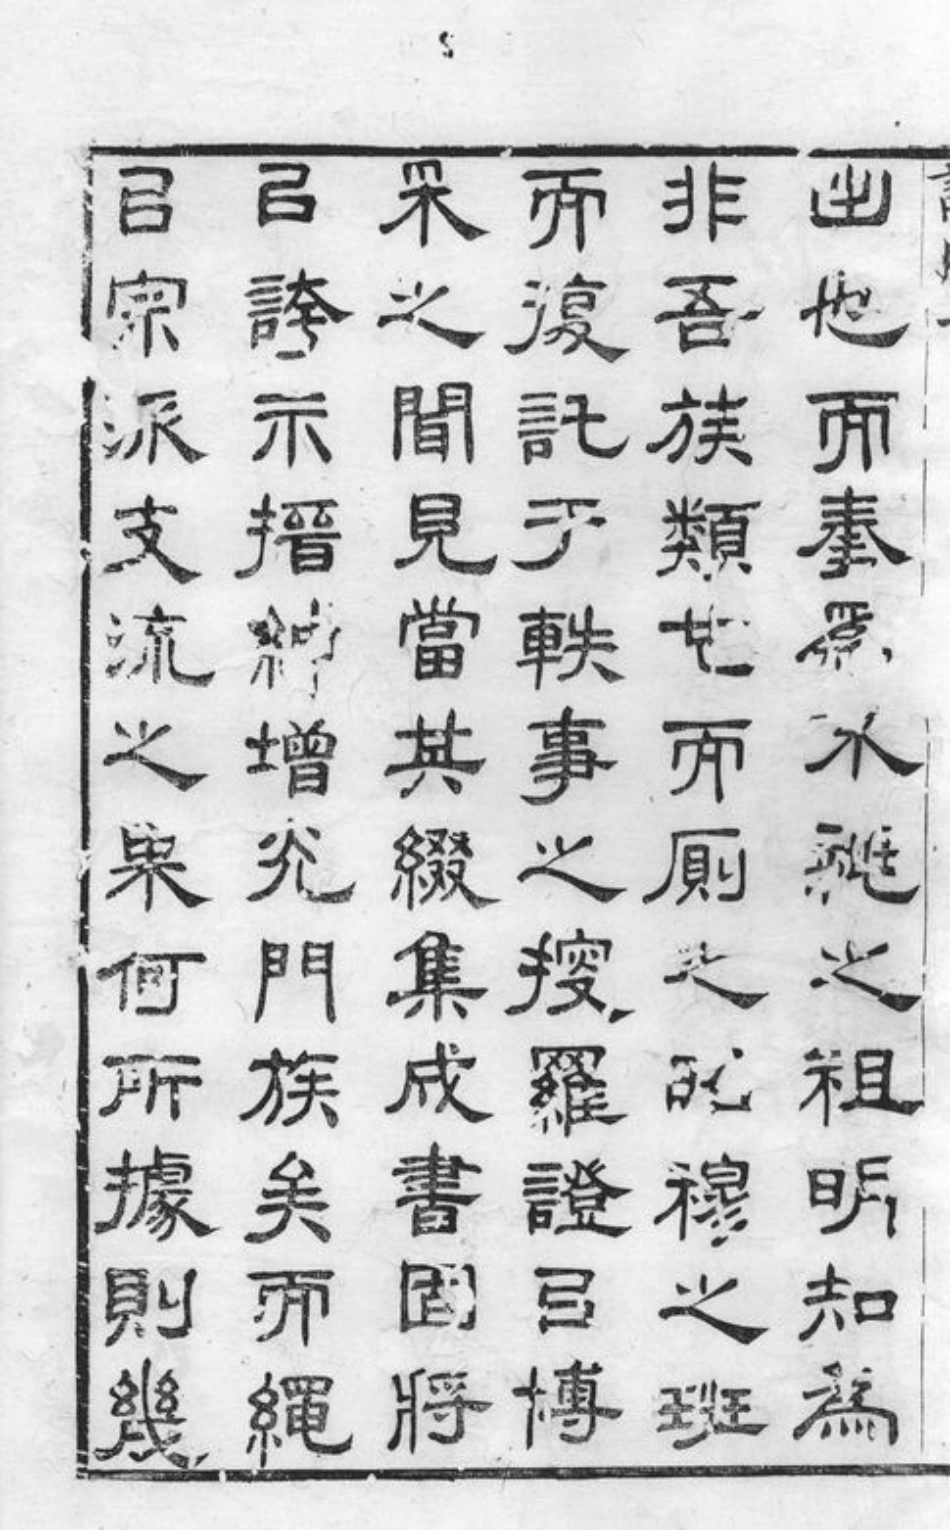 出也而奉為不祧之祖明知為
非吾族類也而廁之昭穆之班
而復託于軼事之搜羅證㠯博
采之聞見當其綴集成書固將
㠯誇示搢紳增光門族矣而繩
㠯宗派支流之果何所據則幾